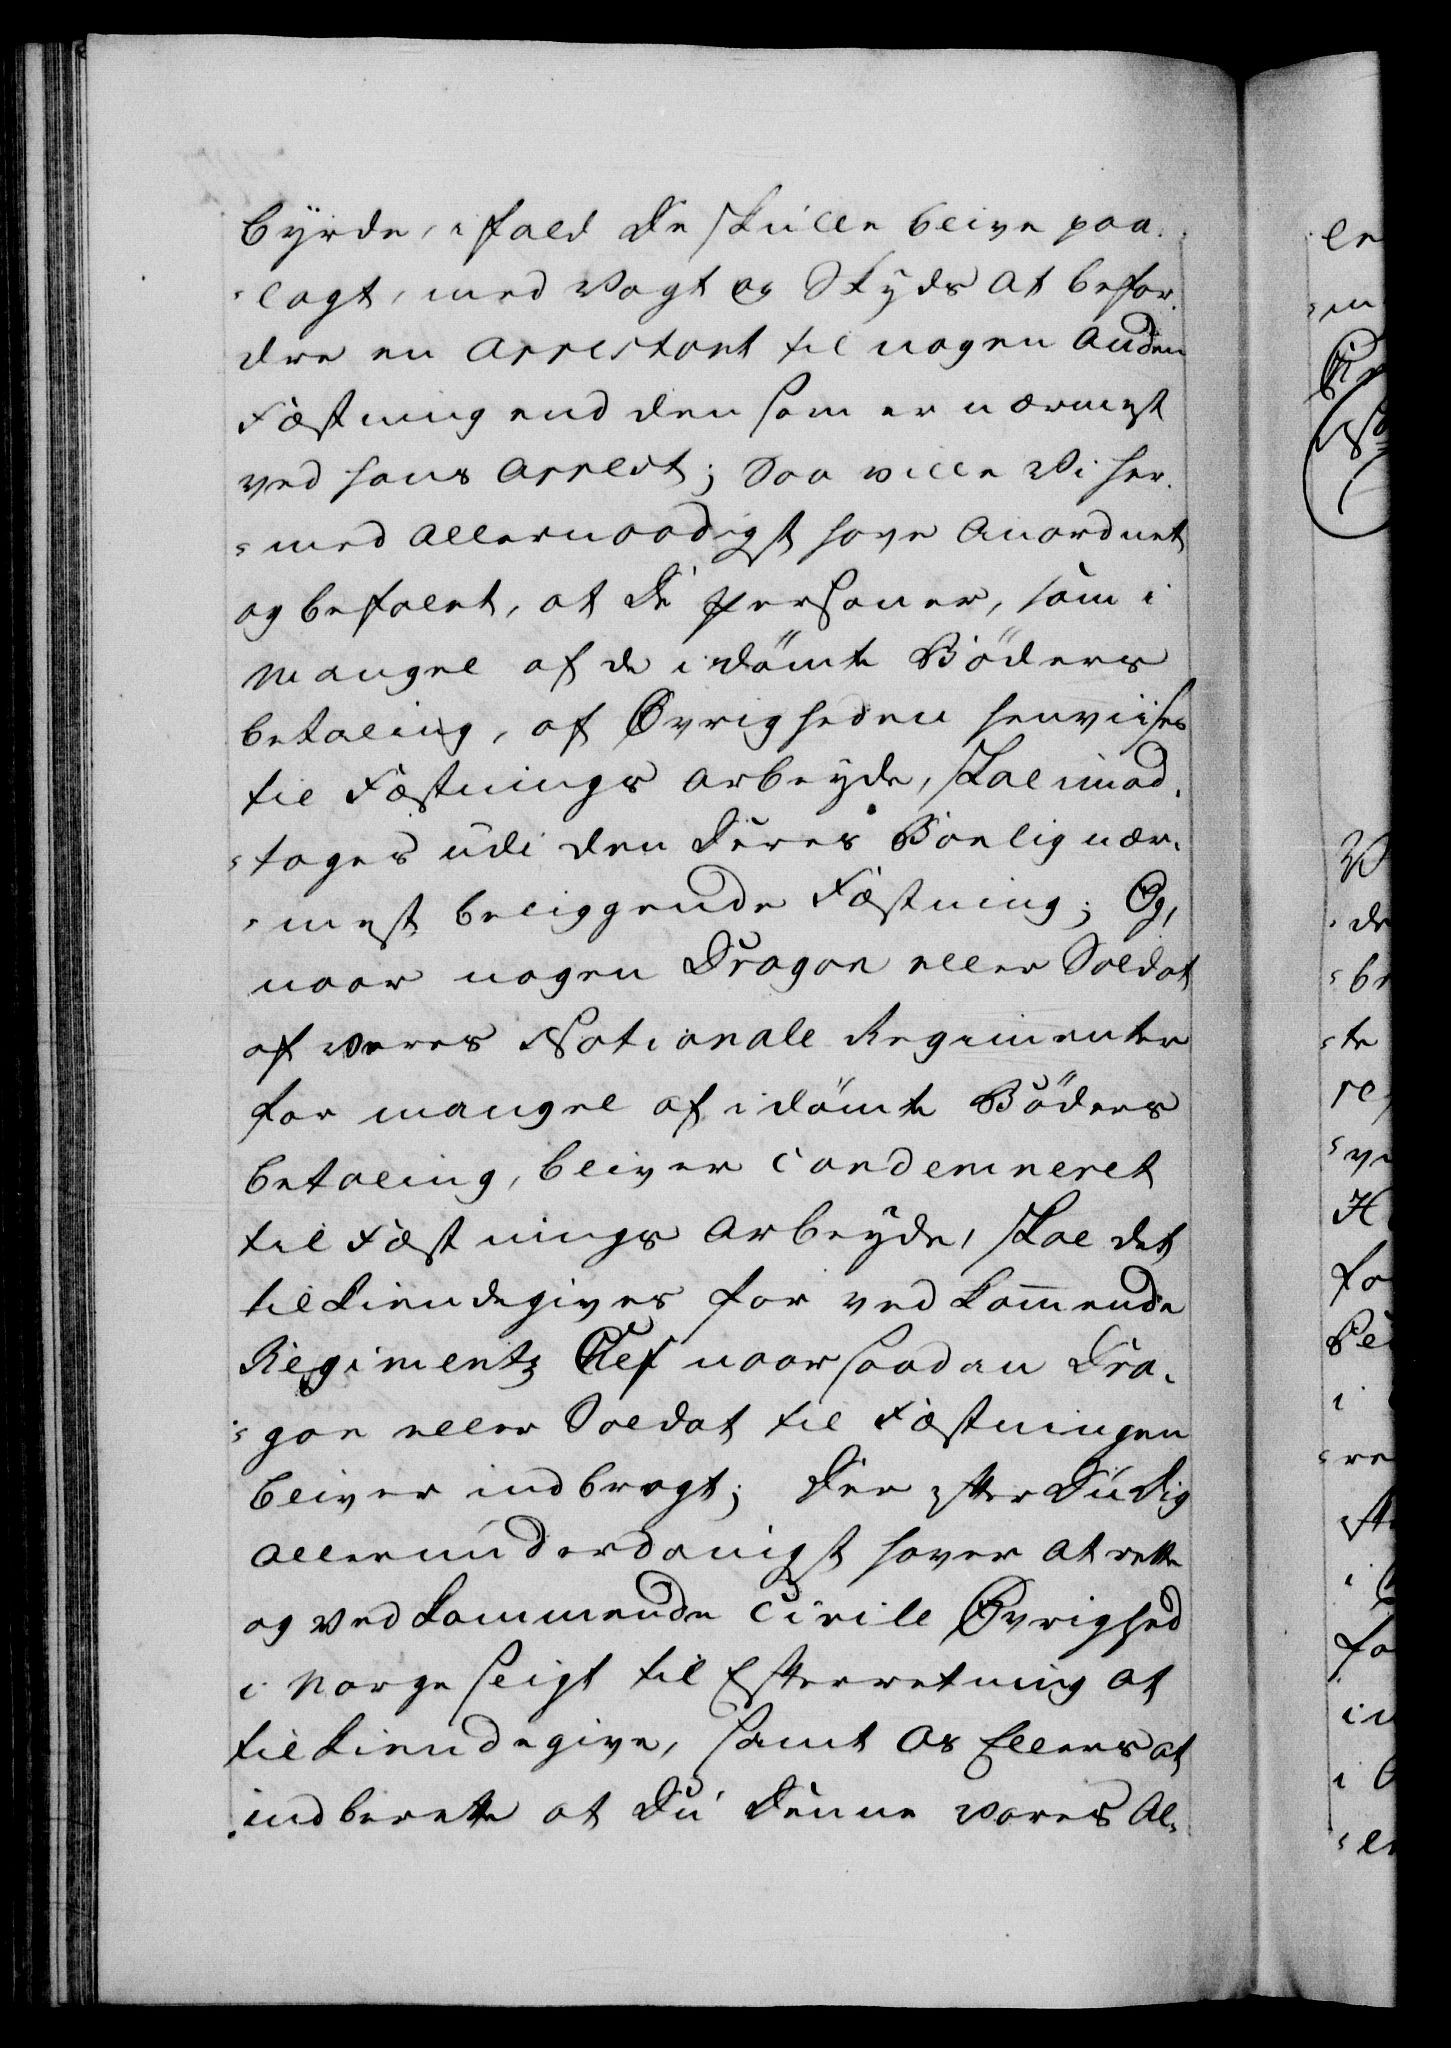 byrde, i fald De skulle blive paa-
lagt, med Vagt og Skyds at befor-
dre en Arrestant til nogen Anden
Fæstning end den som er nærmest
ved hans Arrest; Saa wille Wi her-
med Allernaadigst have Anordnet
og befalet, at De Personer, som i
mangel af de idömte Böders
betaling, af Øvrigheden henviises
til Fæstnings Arbeyde, skal imod-
tages udi den Deres Boelig nær-
mest beliggende Fæstning; Og,
naar nogen Dragon eller Soldat
af vores Nationale Regimenter
for mangel af idömte Böders
betaling, bliver Condemneret
til Fæstnings Arbeyde, skal det
tilkiendegives for ved kom̄ende
Regiments Chef naar saadan Dra-
gon eller Soldat til Fæstningen
bliver indbragt; Der efter Du Dig
allerunderdanigst haver at rette
og vedkommende Civile Øvrighed
i Norge sligt til Efterretning at
tilkiendegive, samt Os Ellers at
indberette at Du Denne vores Al-